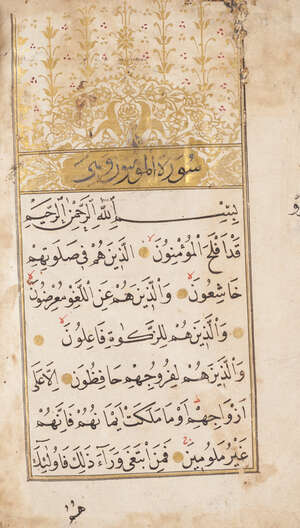 سُورَةُ المؤمنون
بِسْمِ اللّٰهِ الرَّحْمٰنِ الرَّحِيمِ
قَدْ اَفْلَحَ الْمُؤْمِنُونَ الَّذِينَ هُمْ فِي صَلٰوتِهِمْ
خَاشِعُونَ وَالَّذِينَ هُمْ عَنِ اللَّغْوِ مُعْرِضُونَ
وَالَّذِينَ هُمْ لِلزَّكٰوةِ فَاعِلُونَ
وَالَّذِينَ هُمْ لِفُرُوجِهِمْ حَافِظُونَ اِلَّا عَلٰى
اَزْوَاجِهِمْ اَوْ مَا مَلَكَتْ اَيْمَانُهُمْ فَاِنَّهُمْ
غَيْرُ مَلُومِينَ فَمَنِ ابْتَغٰى وَرَاءَ ذٰلِكَ فَاُولٰئِكَ
هُمُ